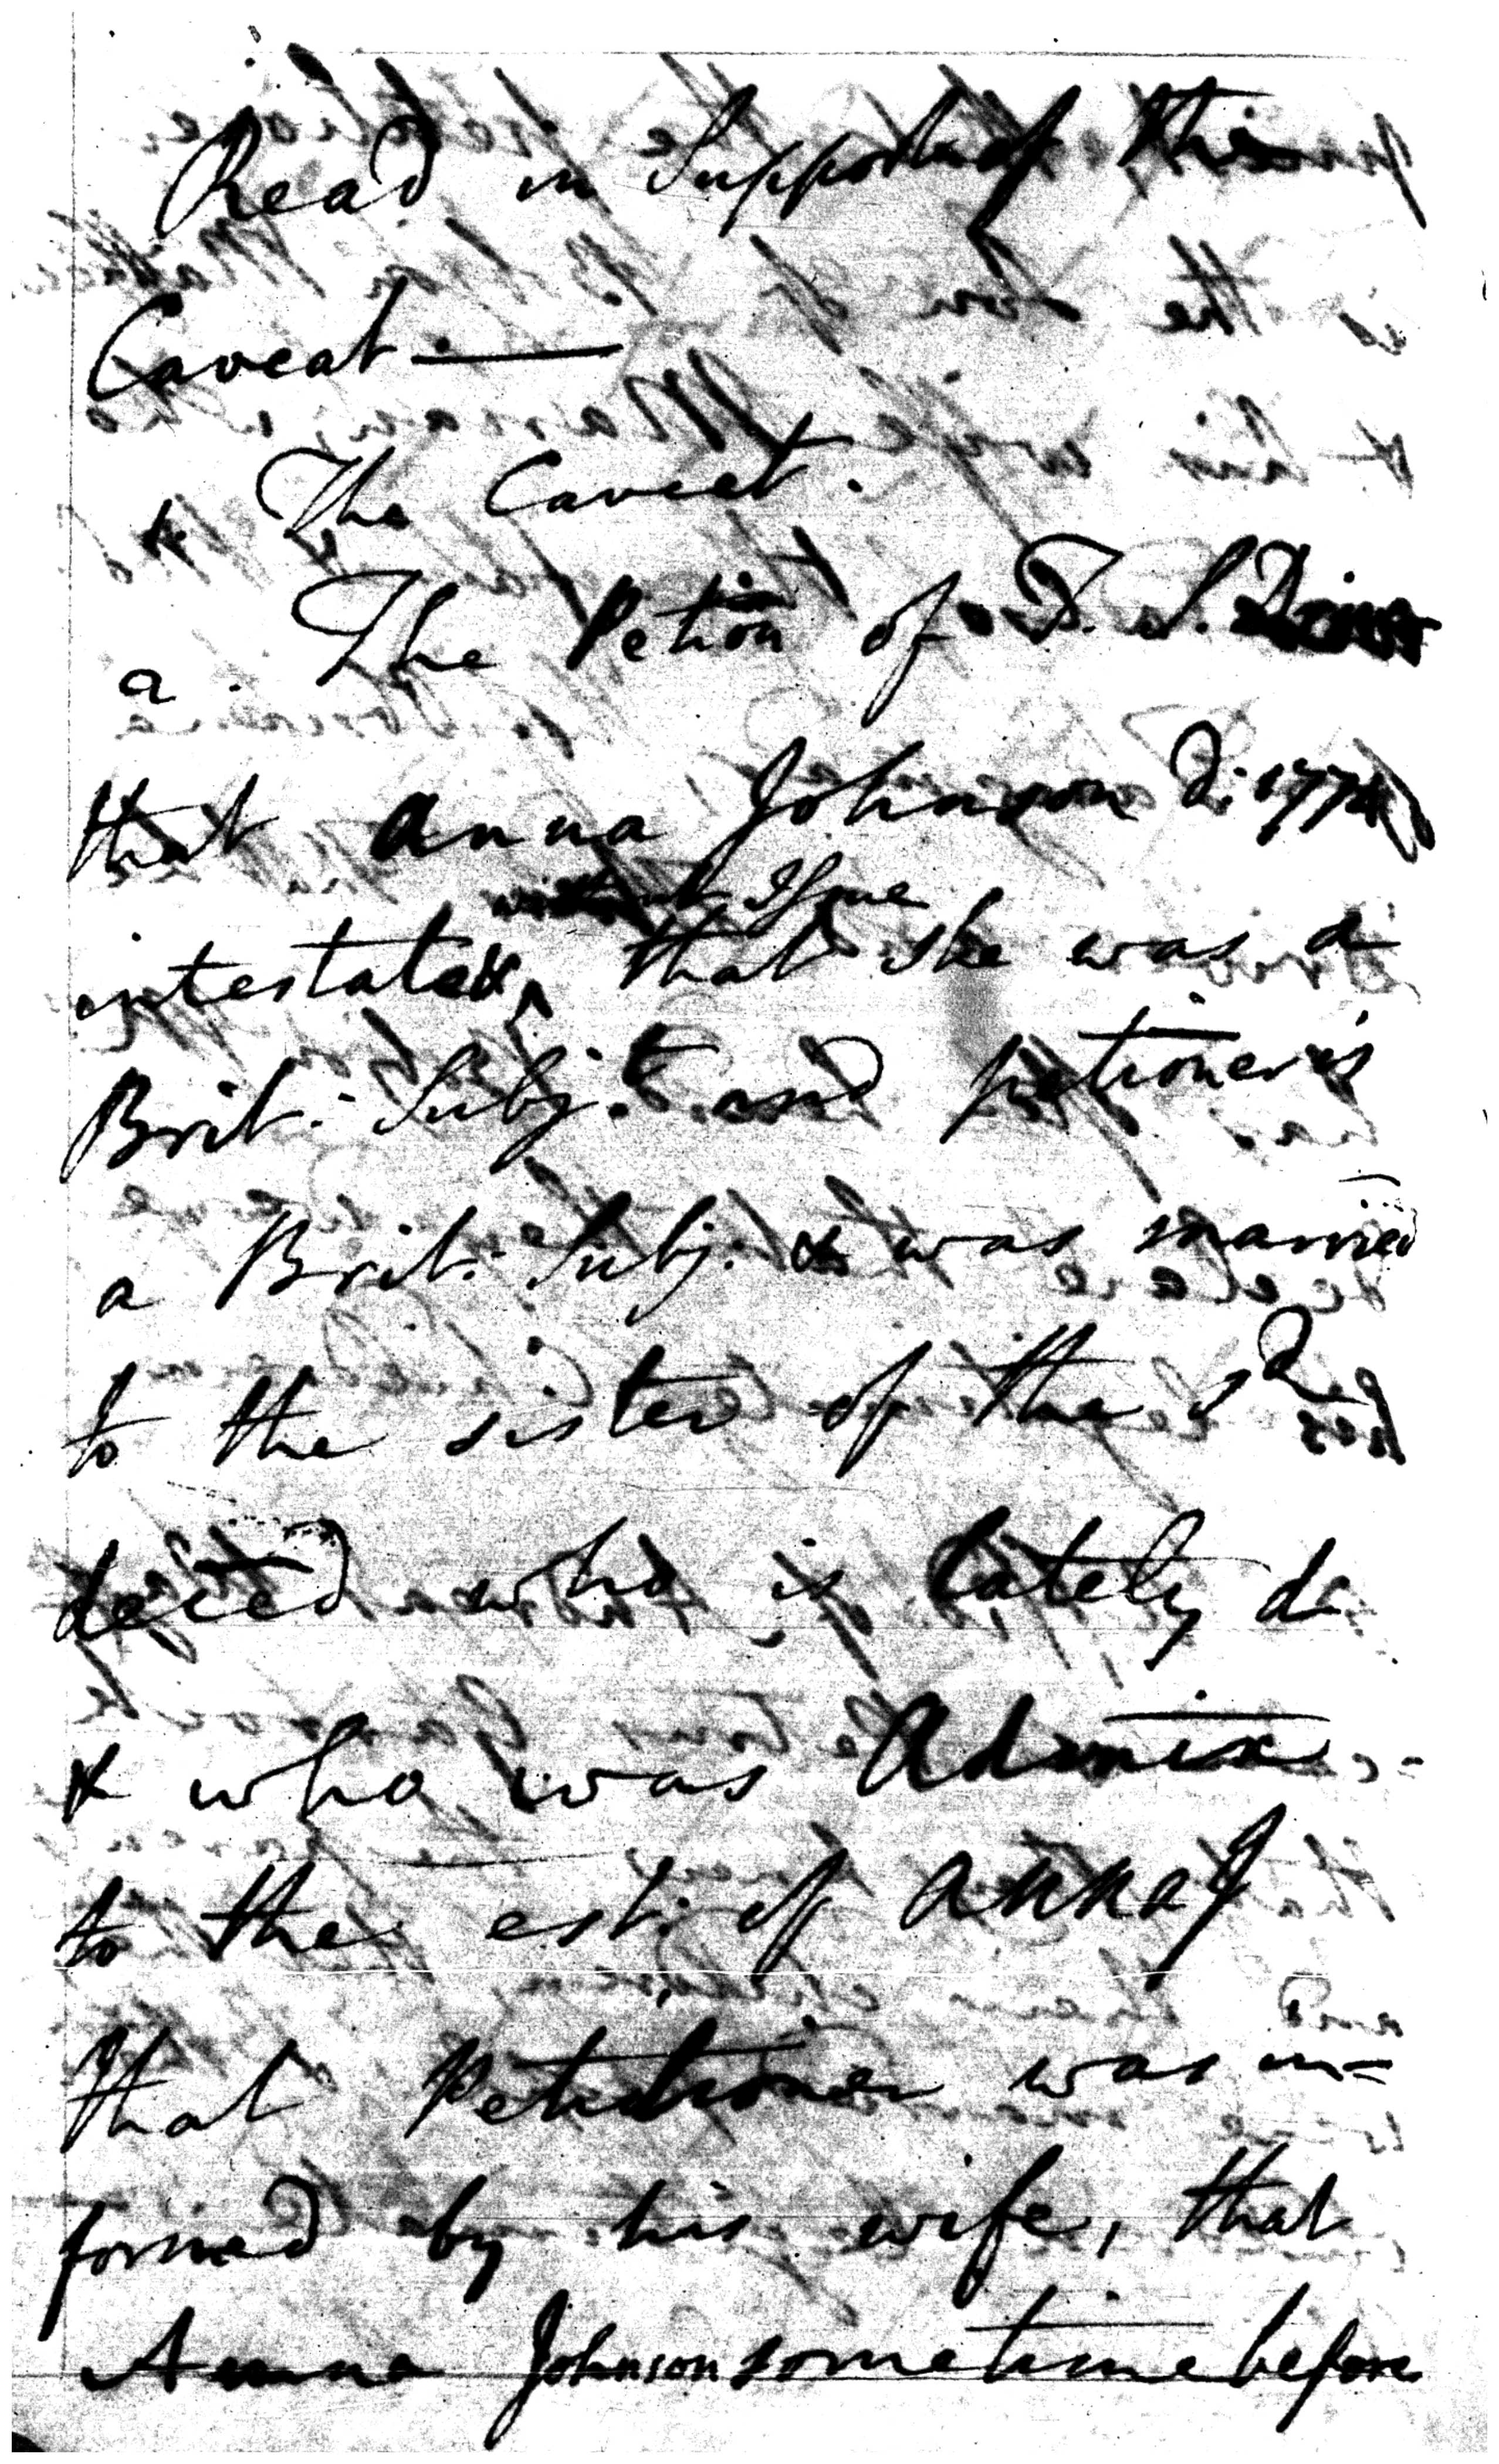 Read in Support of this
Caveat. —
& The Caveat.
a. The Petion of T. S.
that Anna Johnson d: 1774
without Issue
intestate & that she was a
Brit: Subj.t and petioner is
a Brit: Subj. & was married
to the sister of the sd
deced who is lately de
& who was Admix
to the est: of Anna J
that Petitioner was in=
formed by his wife, that
Anna Johnson sometime before